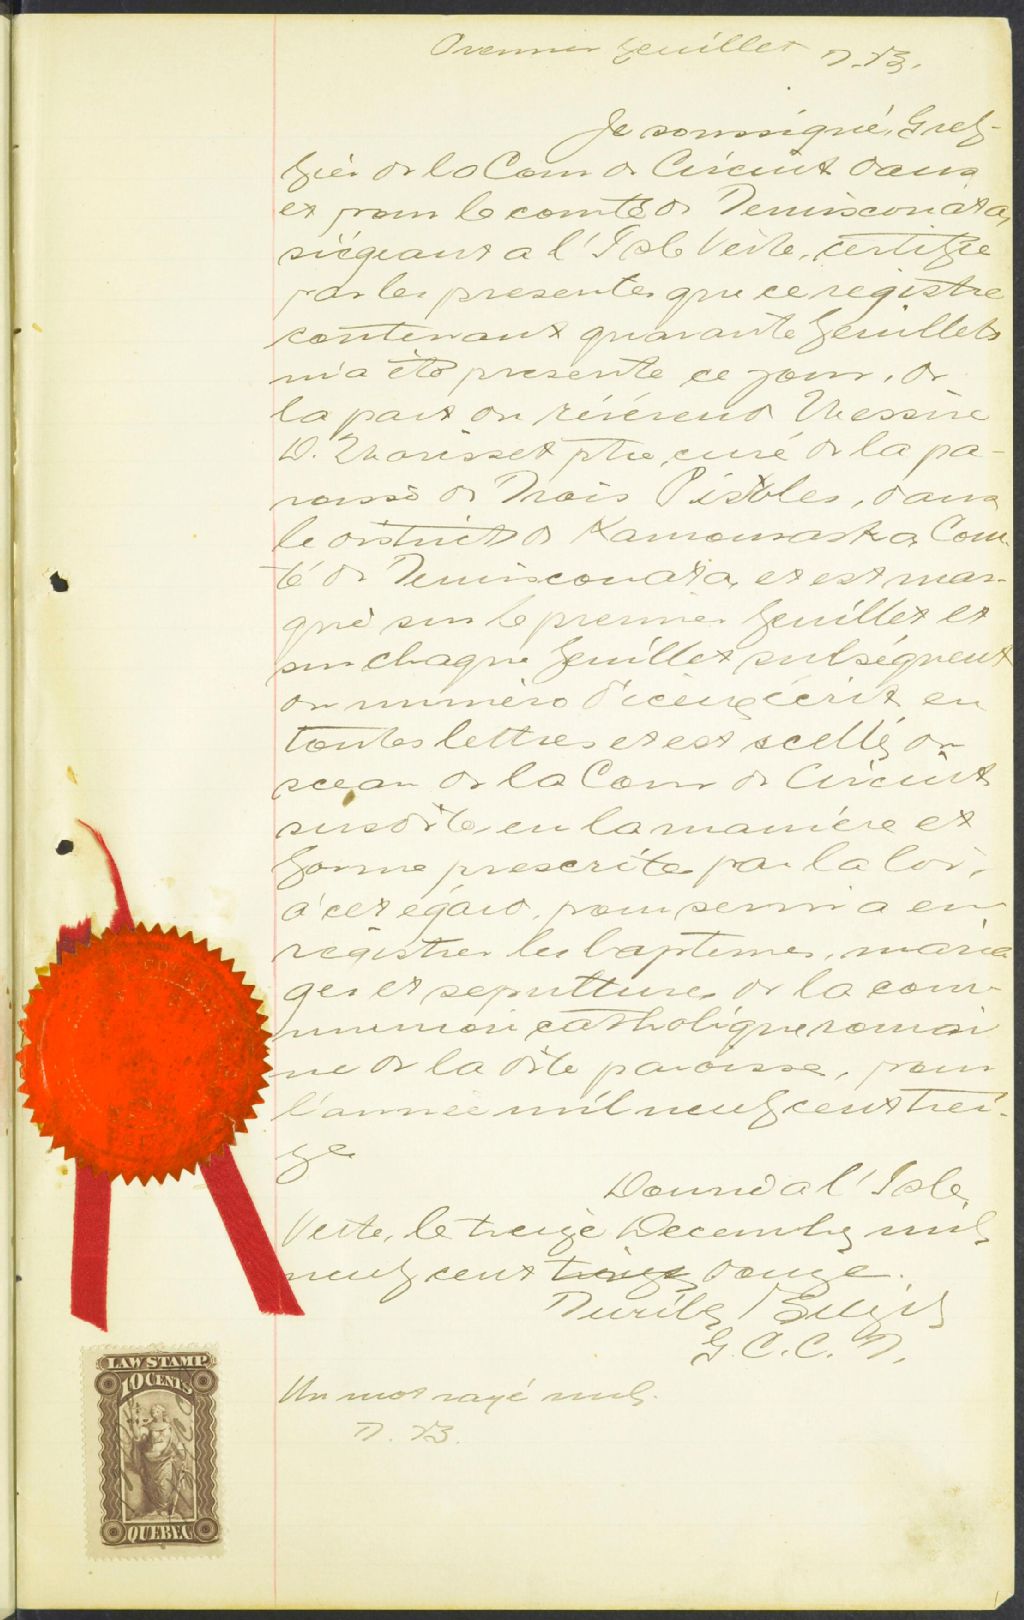 Premier feuillet T.B.
Je soussigné, Gref-
fier de la Cour de Circuit dans
et pour le comté de Temiscouata,
siégeant a l'Isle Verte, certifie
par les presentes que ce registre
contenant quarante feuillets
m'a été presenté ce jour, de
la part du révérend Messire
D. Morisset ptre, curé de la pa-
roisse de Trois Pistoles, dans
le district de Kamouraska Com-
té de Temiscouata, et est mar-
qué sur le premier feuillet et
sur chaque feuillet subséquent
du numéro d'iceux écrit en
toutes lettres et est scellé du
sceau de la Cour de Circuit
susdite, en la manière et
forme prescrite par la loi,
à cet égard, pour servir a en-
régistrer les baptemes, maria-
ges et sepultures de la com-
munion catholique romai
ne de la dite paroisse, pour
l'année mil neuf cent trei-
ze
Donné a l'Isle
Verte, le treize Decembre mil
neuf cent treize douze.
G. C. C. T.
Un mot rayé nul.
T. B.
LAW STAMP
10 CENTS
QUEBEC